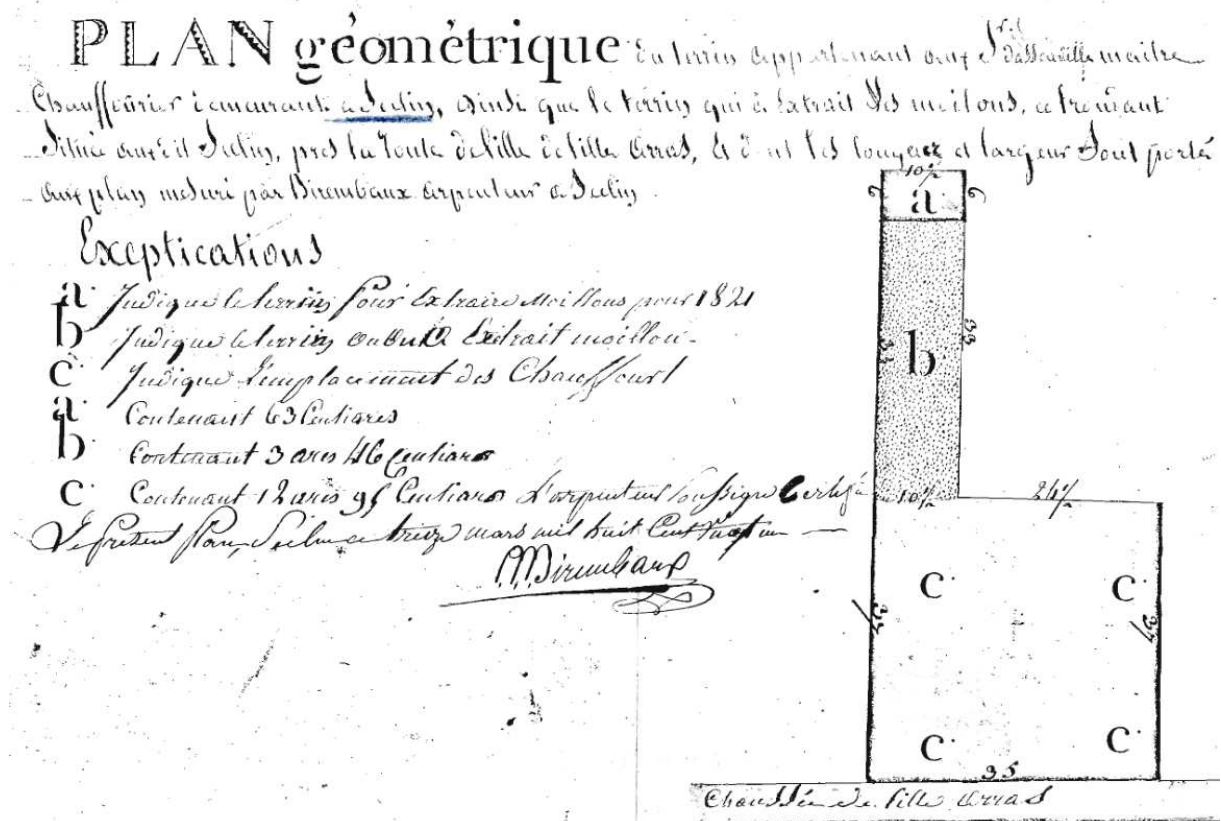 PLAN géométrique du terrin appartenant aux Sr dassonville maitre
Chauffourier demeurant a Seclin, ainsi que le terrin qui à Extrait des moilons, ce trouvant
Situé audit Seclin, pres la Route de lille Arras, et dont les longeur et largeur Sont porté
aux plan mesuré par Birembaux arpenteur a Seclin
Exeptications
a. Indique le terrin pour Extraire Moillons pour 1821
b. Indique le terrin Extrait moillon
c. Indique L'emplacement des Chauffourt
a. Contenant 63 Centiares
b. Contenant 3 ares 46 Centiares
c. Contenant 12 ares 95 Centiares L'arpenteur Soussigné Certifie
Le présent Plan, Seclin ce treize mars mil huit Cent vingt un
Birembaux
10½
6 a. 6
33 b 33
10½ 24½
c. c.
37
c. c.
35
Chaussée de Lille Arras